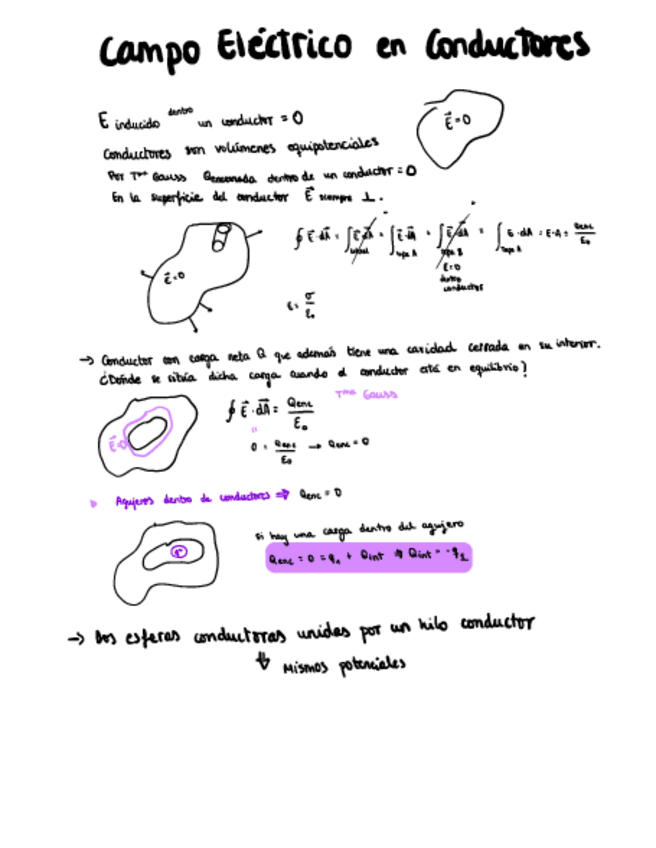 Campo Eléctrico en Conductores
E inducido dentro un conductor = 0
E⃗=0
Conductores son volúmenes equipotenciales
Por Tma Gauss Qencerrada dentro de un conductor = 0
En la superficie del conductor E⃗ siempre ⊥.
E⃗=0
∮ E⃗·dA⃗ = ∫lateral E⃗·dA⃗ + ∫tapa A E⃗·dA⃗ + ∫tapa B E⃗·dA⃗ = ∫tapa A E·dA = E·A = Qenc/ε₀
E=0
dentro
conductor
E = σ/ε₀
→ Conductor con carga neta Q que además tiene una cavidad cerrada en su interior.
¿Dónde se sitúa dicha carga cuando el conductor está en equilibrio?
E⃗=0
∮ E⃗·dA⃗ = Qenc/ε₀ Tma Gauss
0 = Qenc/ε₀ → Qenc = 0
Agujeros dentro de conductores ⇒ Qenc = 0
si hay una carga dentro del agujero
Qenc = 0 = q₁ + Qint ⇒ Qint = -q₁
→ Dos esferas conductoras unidas por un hilo conductor
⇓ Mismos potenciales